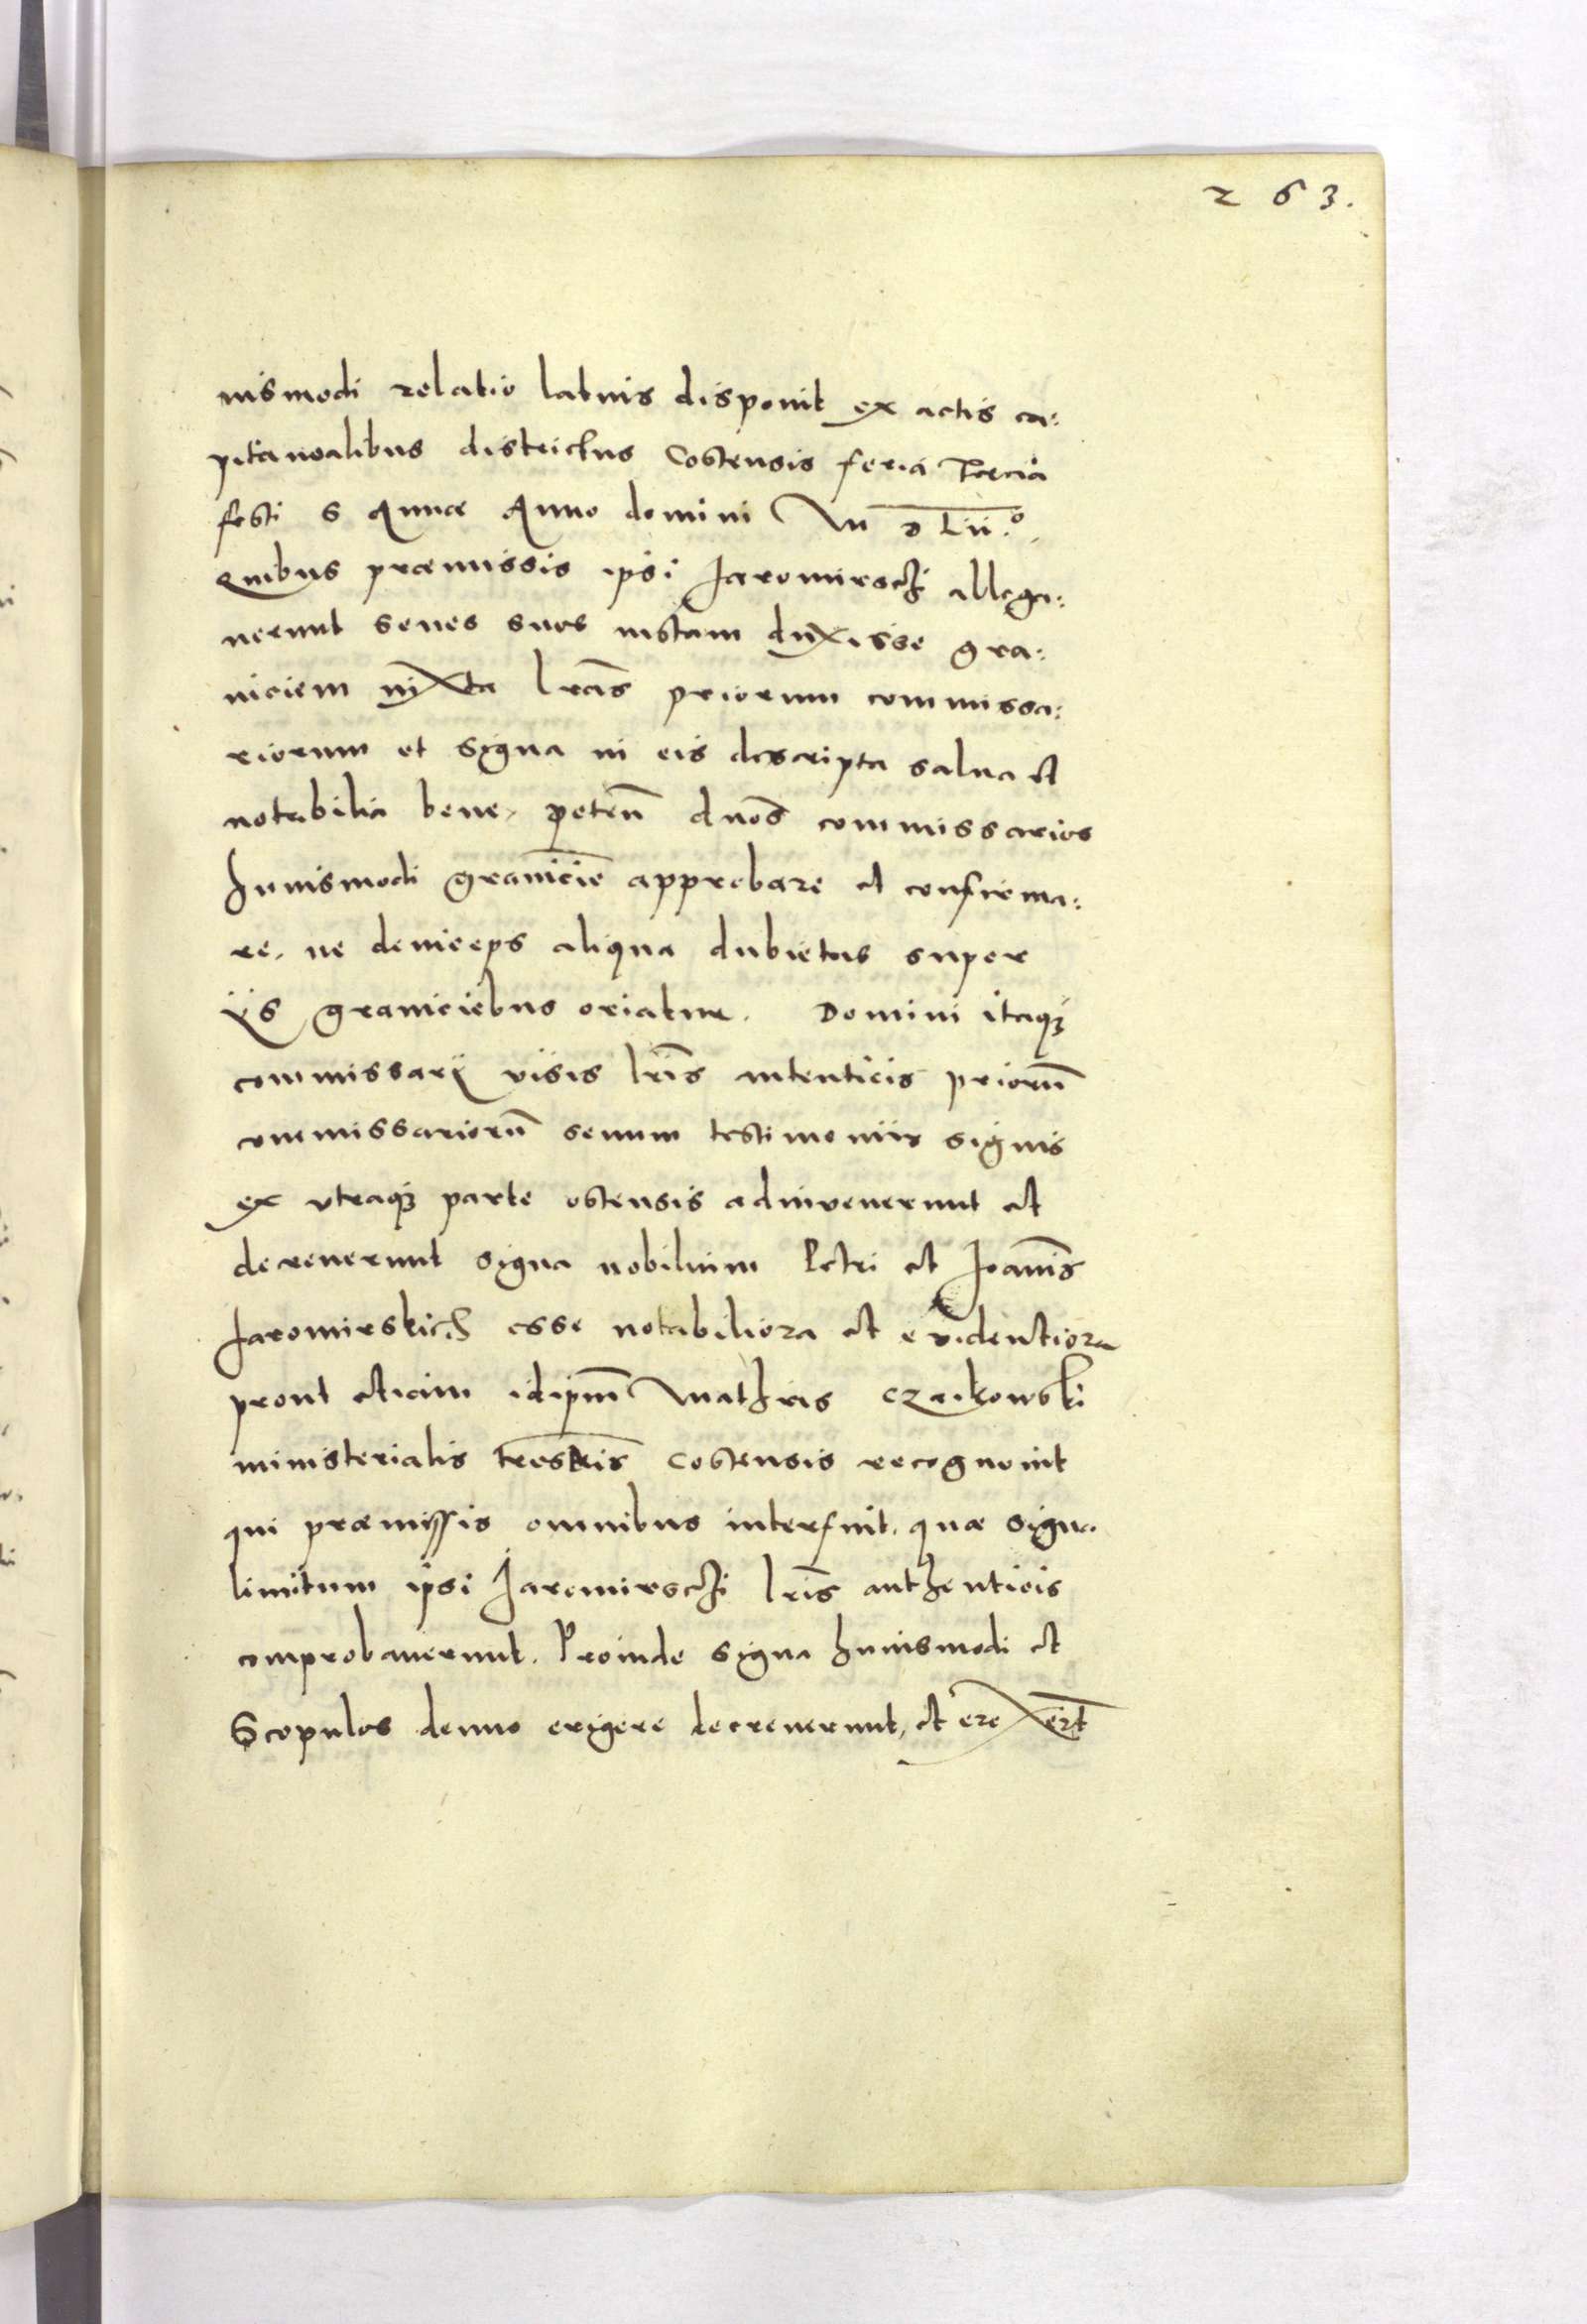 263.
uismodi relatio latuis disponit ex actis ca:
pitanealibus districtus Costensis feria Tercia
festi s Annæ Anno domini M D Lii.º
Quibus præmissis ipsi Jaromirschi allega:
uerunt senes suos iustam duxisse gra:
niciem iuxta lras priorum commissa:
riorum et signa in eis descripta salua et
notabilia bene, peten dnos commissarios
huiusmodi granicie approbare et confirma:
re, ne deniceps aliqua dubietas super
ijs graniciebus oriatur. Domini itaq
commissarij visis lris autenticis prioru
commissarioru senum testimoniis signis
ex vtraq parte ostensis adinvenerunt et
decreuerunt signa nobilium Petri et Joanis
Jaromirskich esse notabiliora et evidentiora
prout etiam idipm Mathias Czaikowski
ministerialis trestris Costensis recognouit
qui præmissis omnibus interfuit, quæ signa
limitum ipsi Jaromirschi lris authenticis
comprobauerunt. Proinde signa huiusmodi et
Scopulos denuo erigere decreuerunt, et erexert